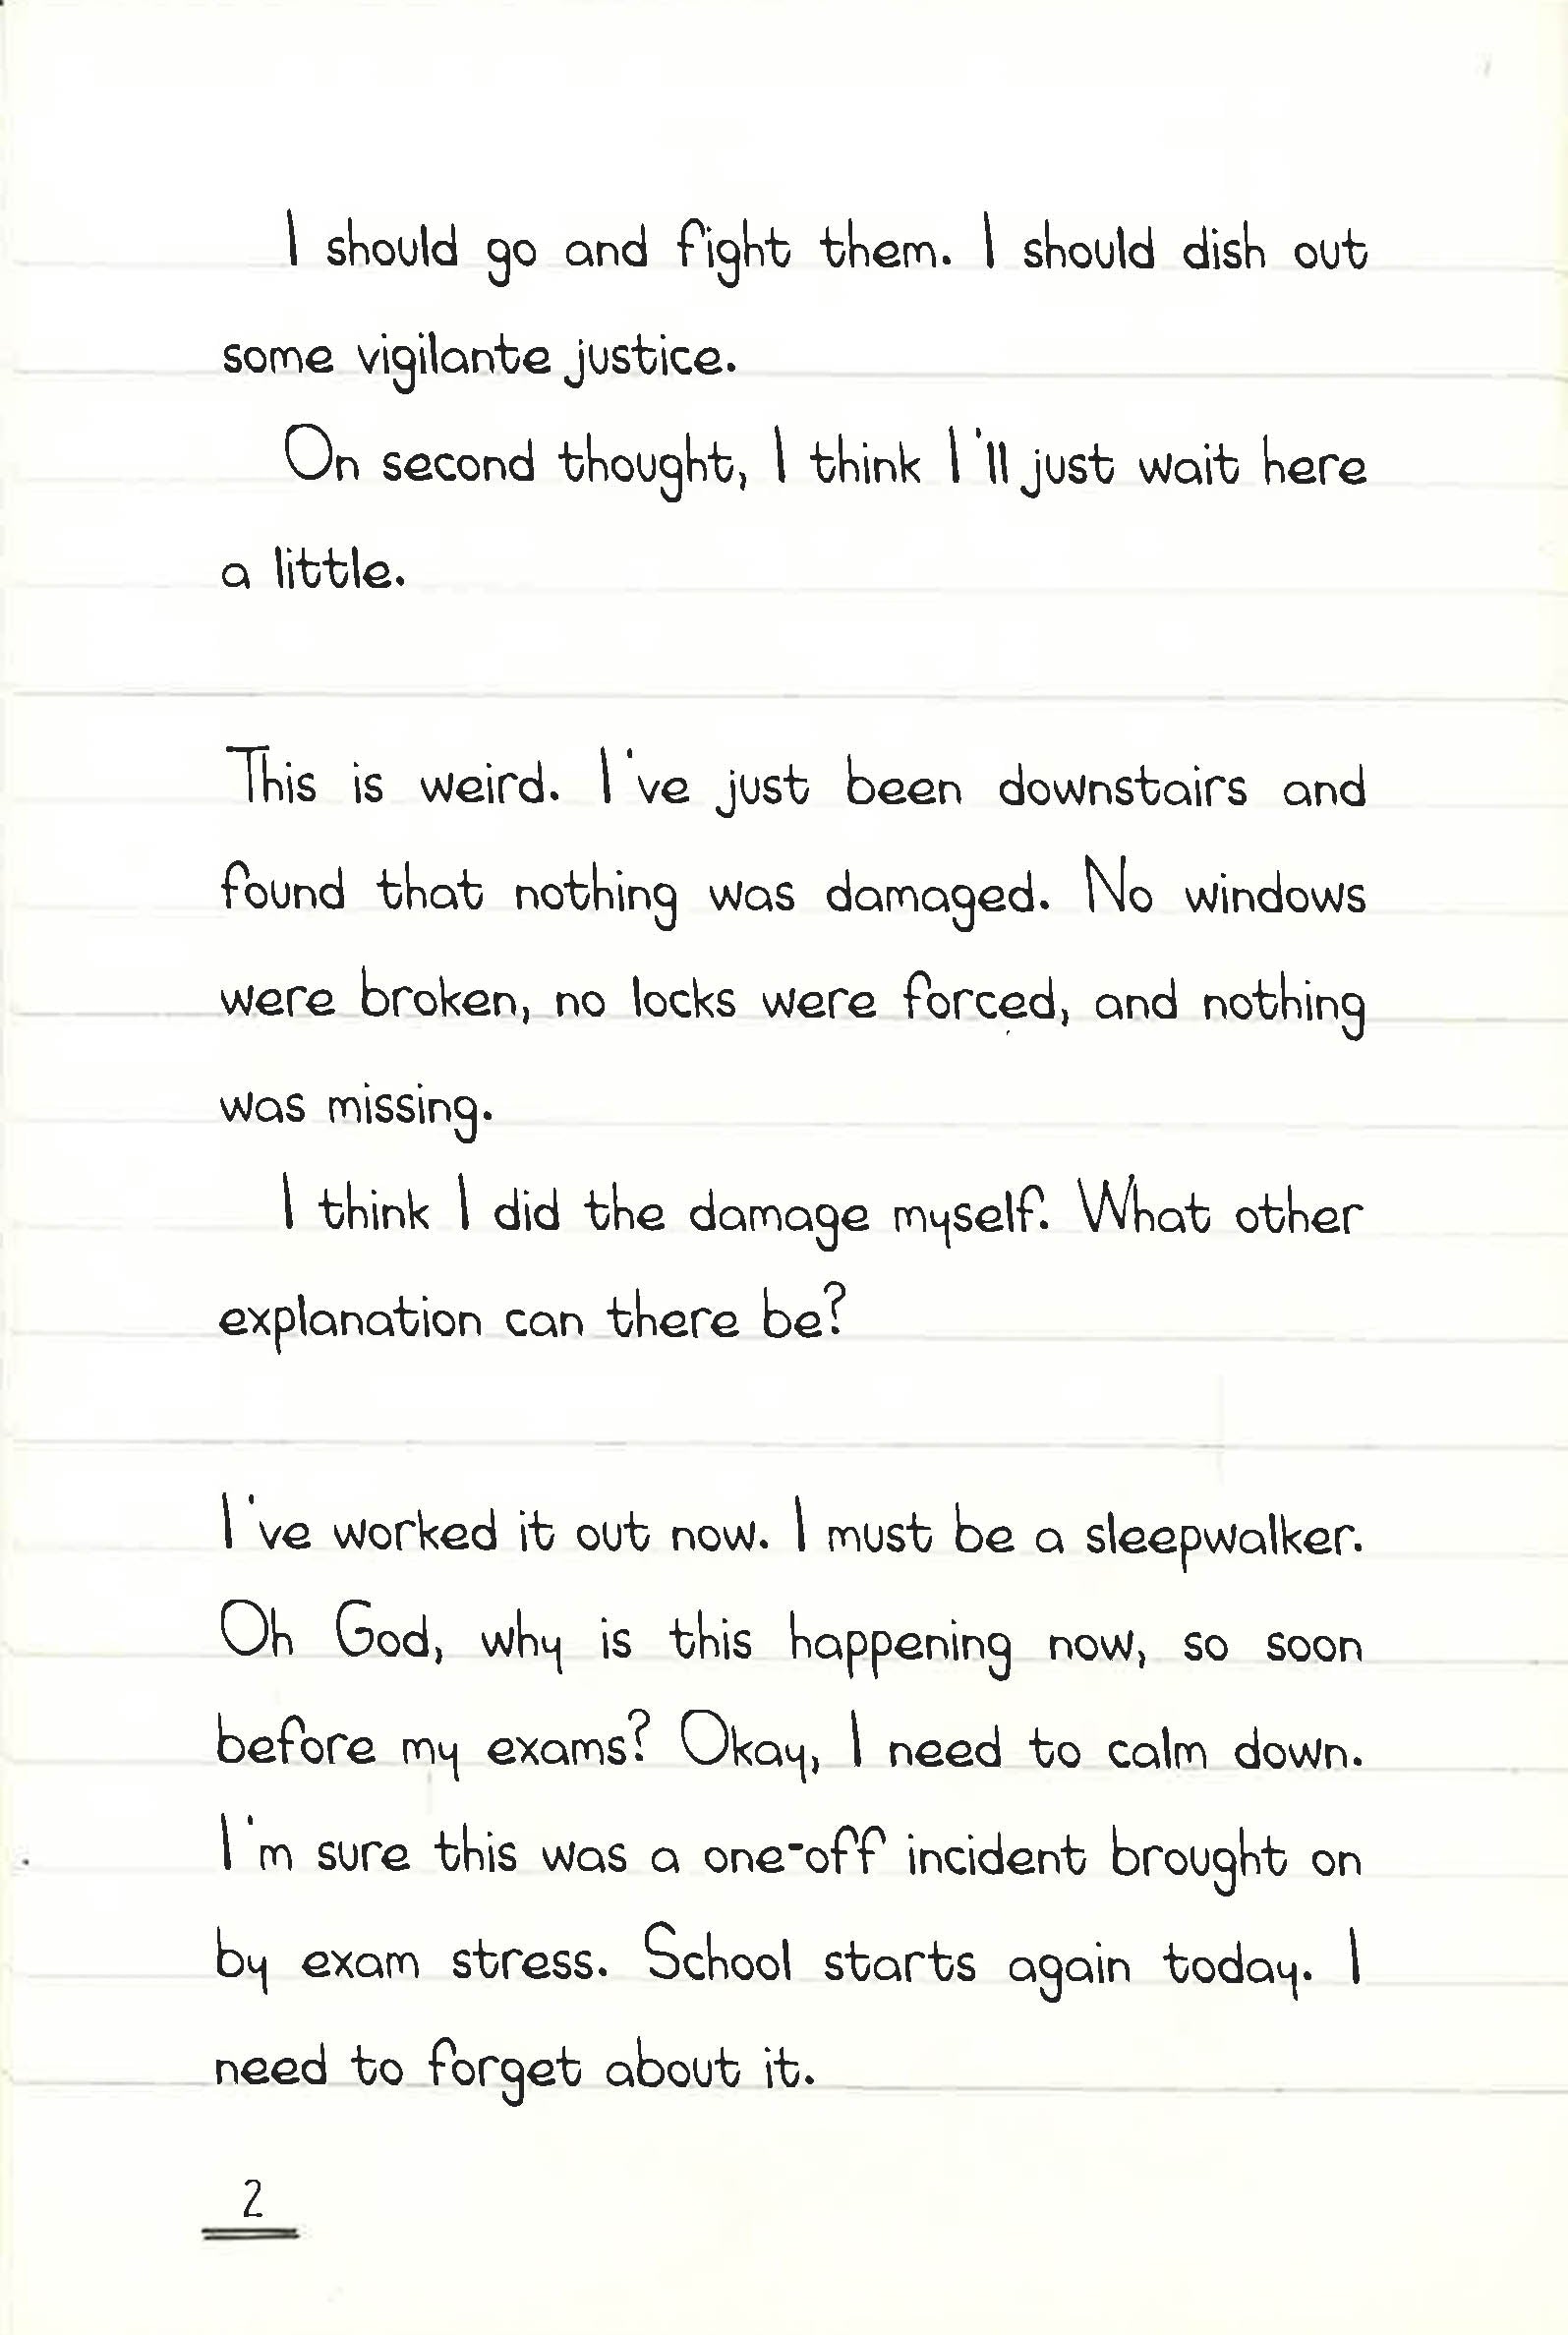 I should go and fight them. I should dish out
some vigilante justice.
On second thought, I think I'll just wait here
a little.
This is weird. I've just been downstairs and
found that nothing was damaged. No windows
were broken, no locks were forced, and nothing
was missing.
I think I did the damage myself. What other
explanation can there be?
I've worked it out now. I must be a sleepwalker.
Oh God, why is this happening now, so soon
before my exams? Okay, I need to calm down.
I'm sure this was a one-off incident brought on
by exam stress. School starts again today. I
need to forget about it.
2